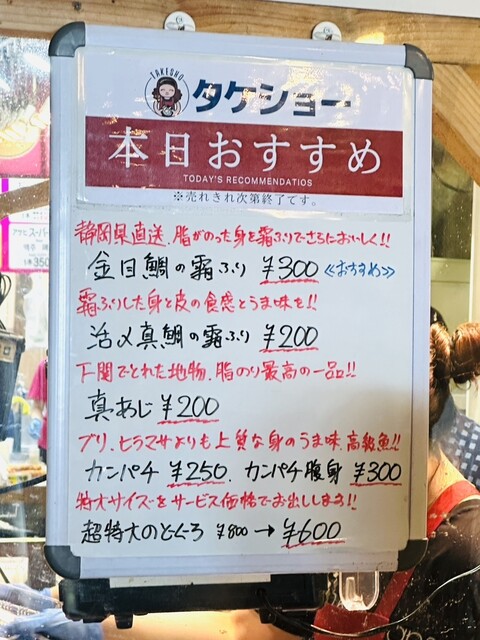 TAKESHO
タケショー
本日おすすめ
TODAY'S RECOMMENDATIOS
※売れきれ次第終了てす。
静岡県直送、脂がのった身を霜ふりでさらにおいしく!!
金目鯛の霜ふり ¥300 ≪おすすめ≫
霜ふりした身と皮の食感とうま味を!!
活〆真鯛の霜ふり ¥200
下関でとれた地物、脂のり最高の一品!!
真あじ ¥200
ブリ、ヒラマサよりも上質な身のうま味、高級魚!!
カンパチ ¥250、カンパチ腹身 ¥300
特大サイズをサービス価格でお出しします!!
超特大のどぐろ ¥800→¥600